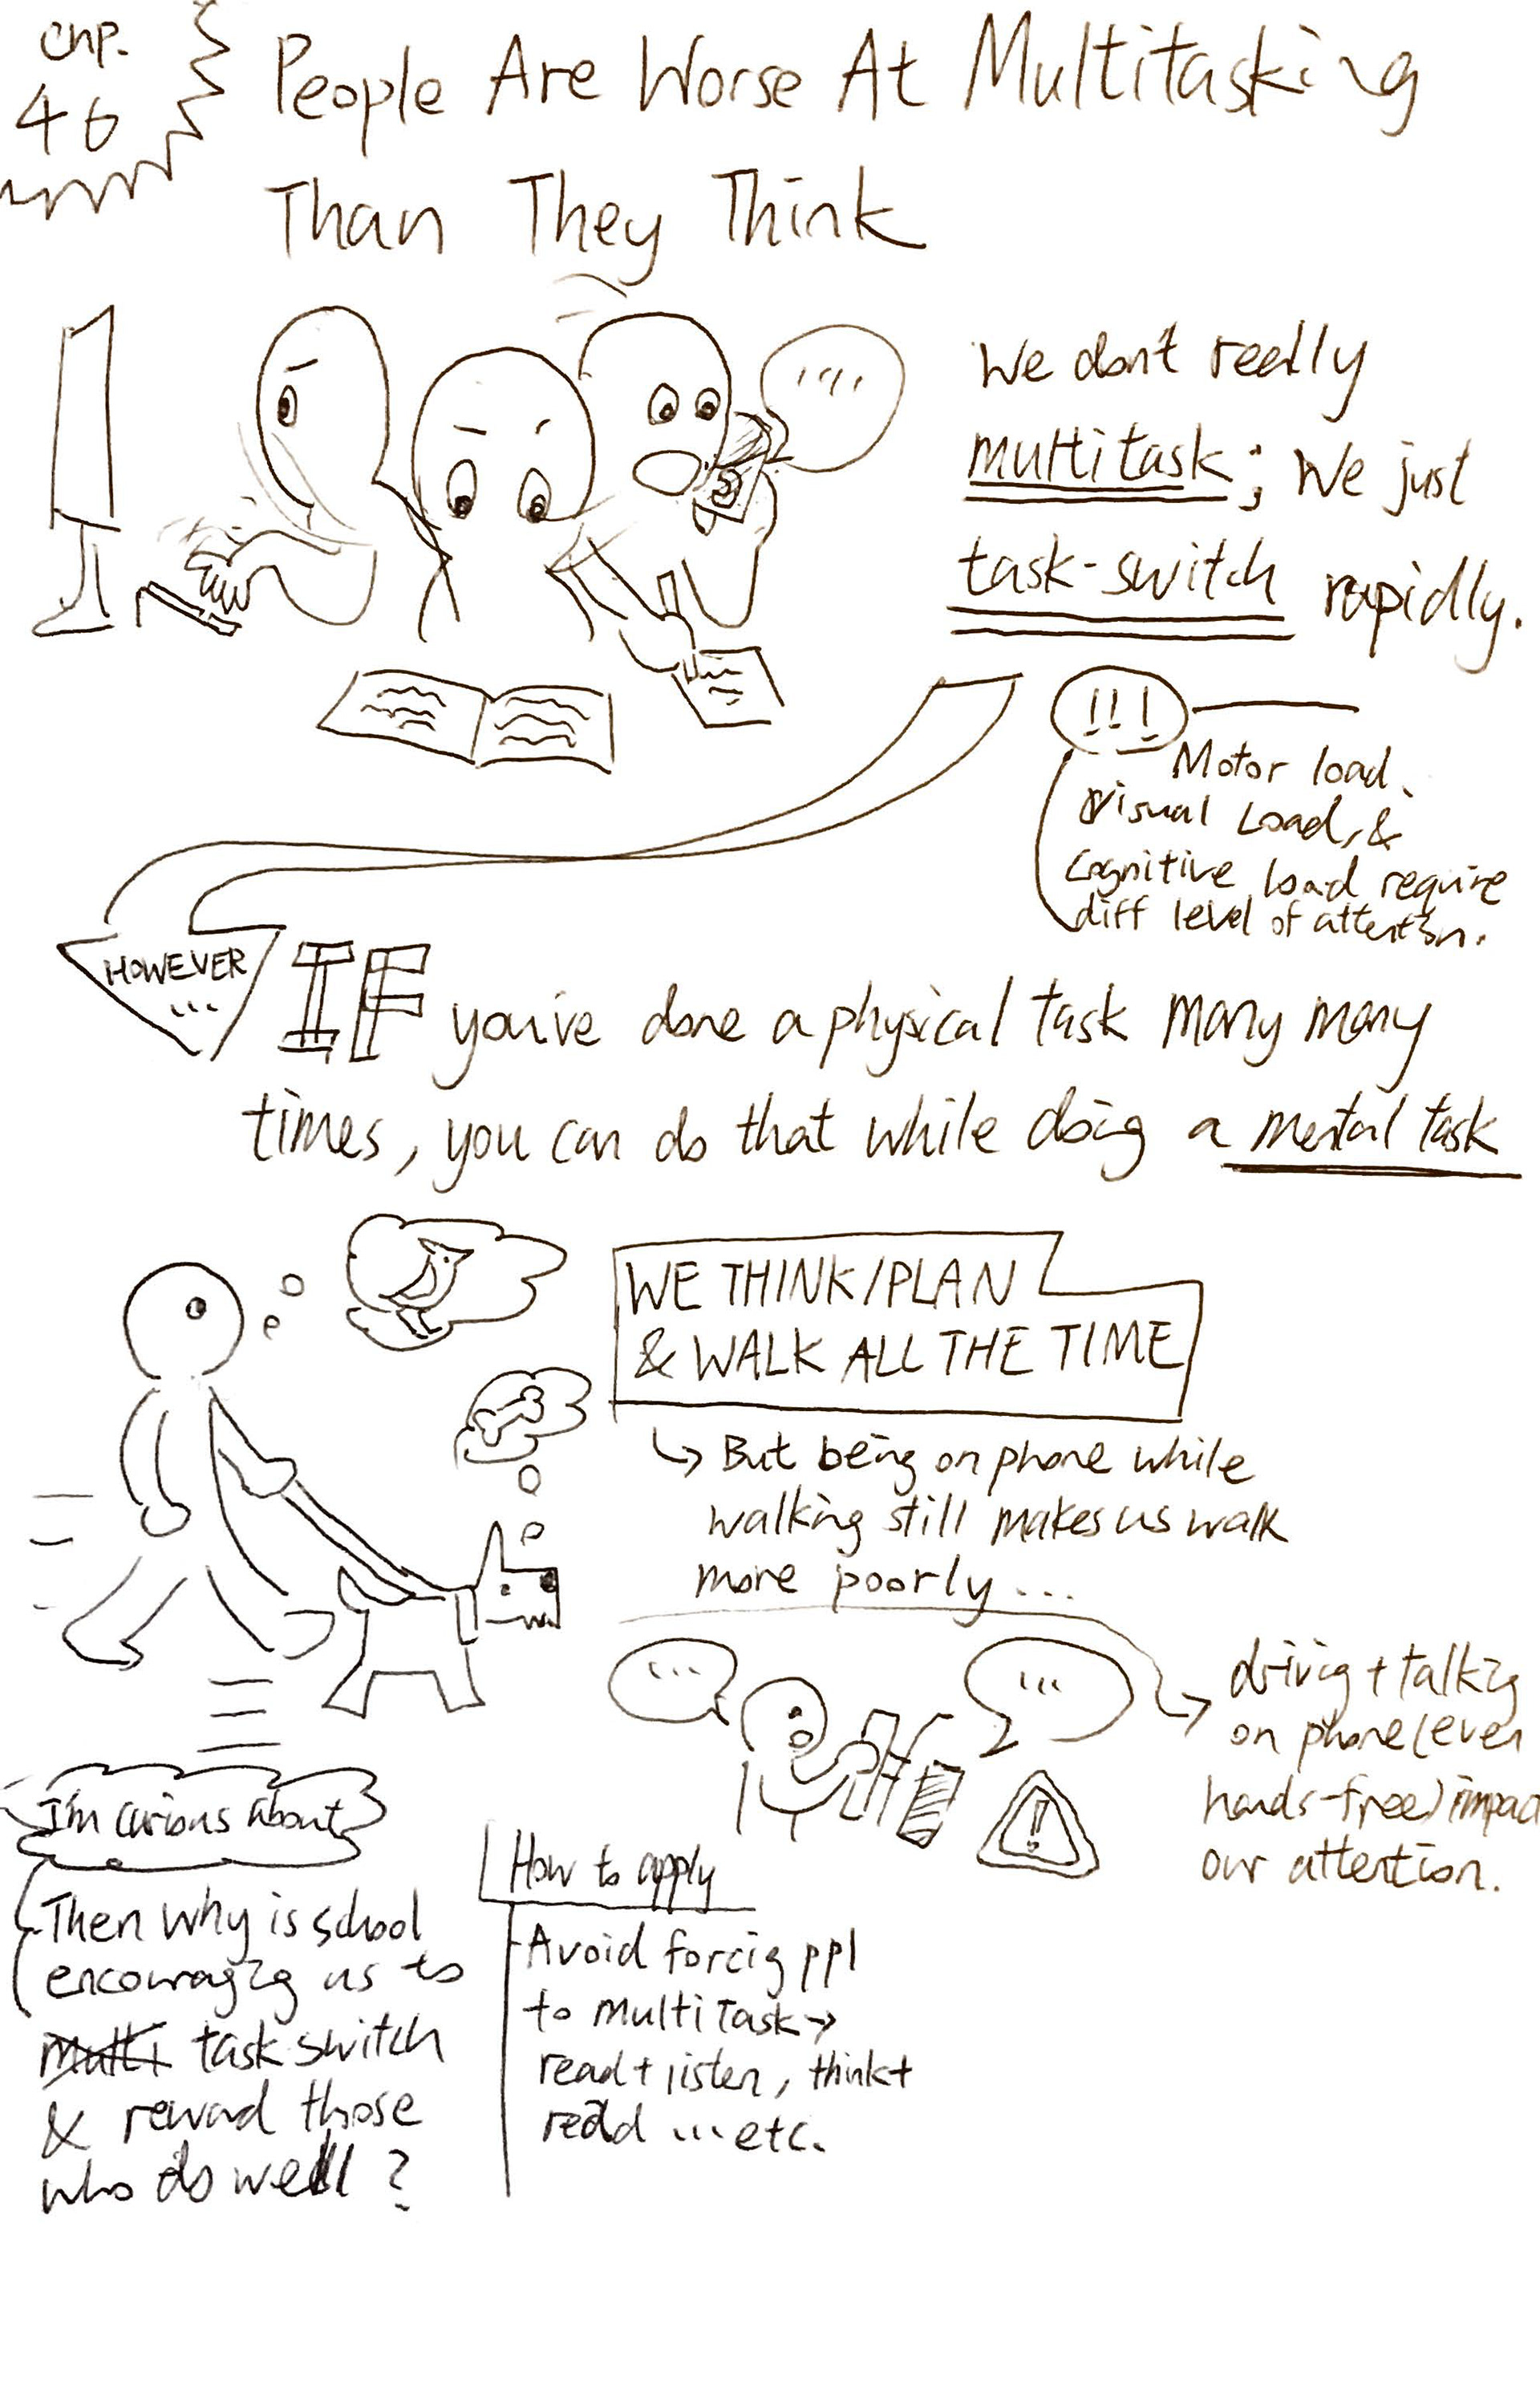 CHP.
46
People Are Worse At Multitasking
Than They Think
We don't really
multitask; We just
task-switch rapidly.
!!!
Motor load,
Visual Load, &
Cognitive load require
diff level of attention.
HOWEVER
...
IF you've done a physical task many many
times, you can do that while doing a mental task
WE THINK/PLAN
& WALK ALL THE TIME
But being on phone while
walking still makes us walk
more poorly...
driving + talking
on phone (even
hands-free) impact
our attention.
I'm curious about
Then why is school
encouraging us to
multi task switch
& reward those
who do well?
How to apply
Avoid forcing ppl
to multitask →
read + listen, think +
read ... etc.